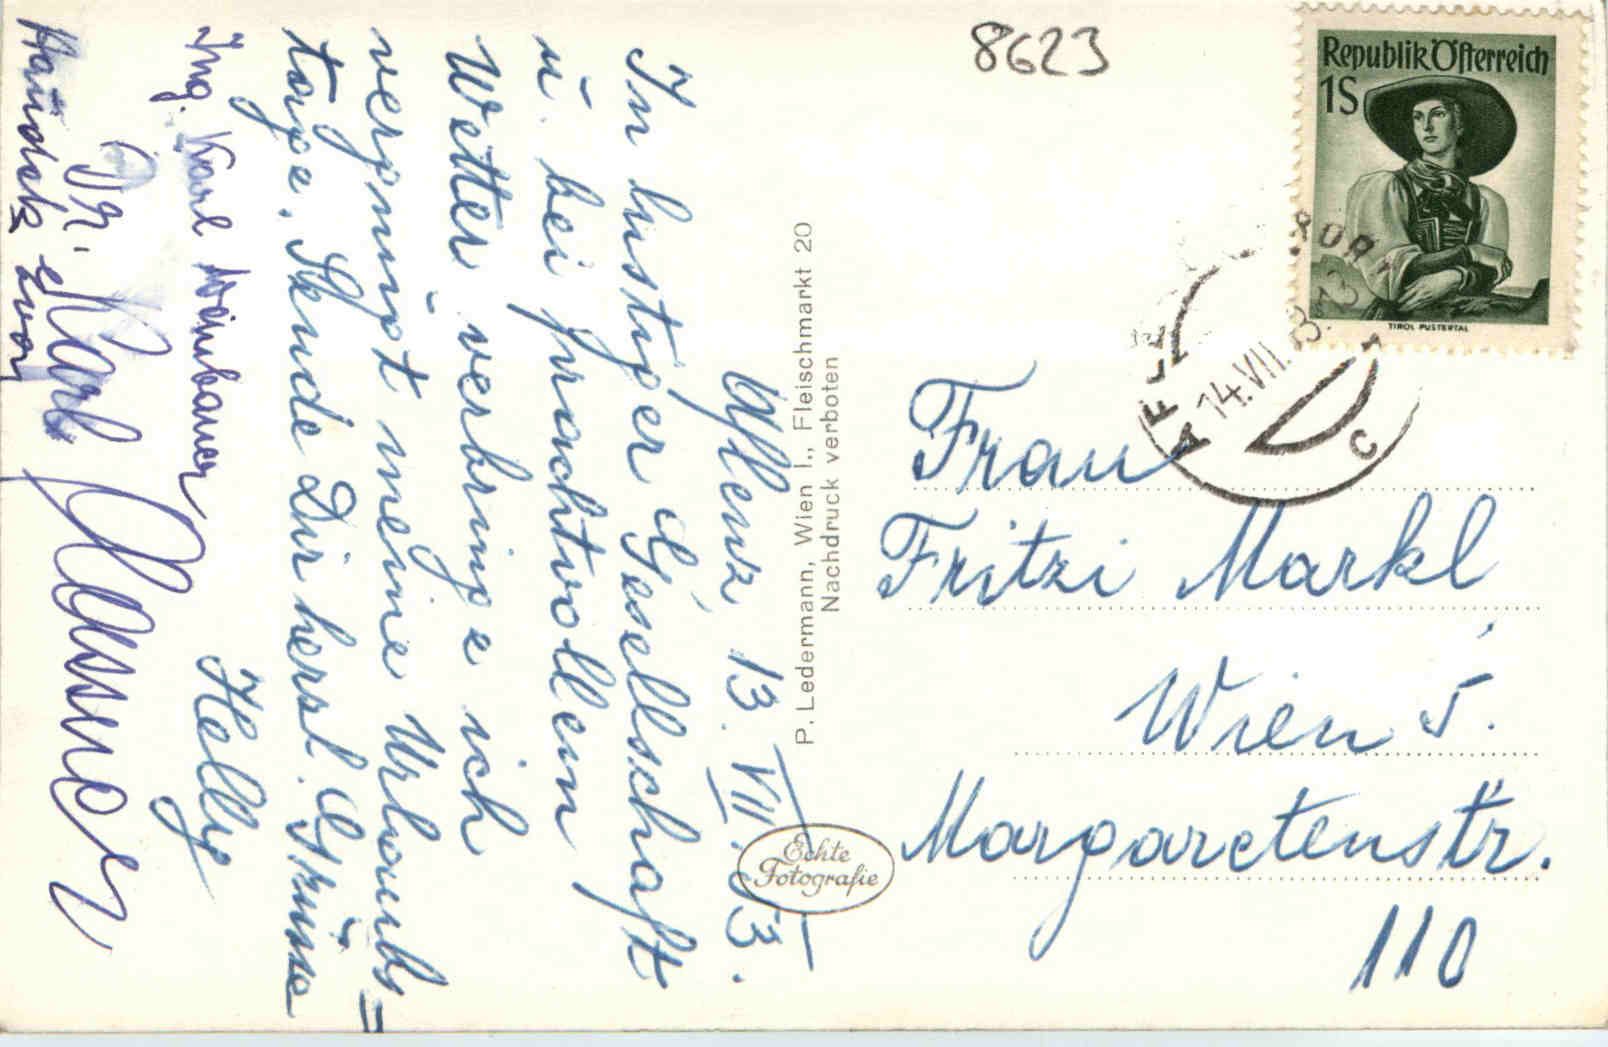 8623
Republik Österreich
1S
TIROL PUSTERTAL
AFLENZ
KURORT
14.VII.53
C
Aflenz, 13. VII. 53.
In lustiger Gesellschaft
u. bei prachtvollem
Wetter verbringe ich
vergnügt meine Urlaubs=
tage. Sende Dir herzl. Grüsse
Helly
Ing. Karl Weinbauer
Dr. Karl
Handek
P. Ledermann, Wien I., Fleischmarkt 20
Nachdruck verboten
Echte
Fotografie
Frau
Fritzi Markl
Wien 5.
Margaretenstr.
110